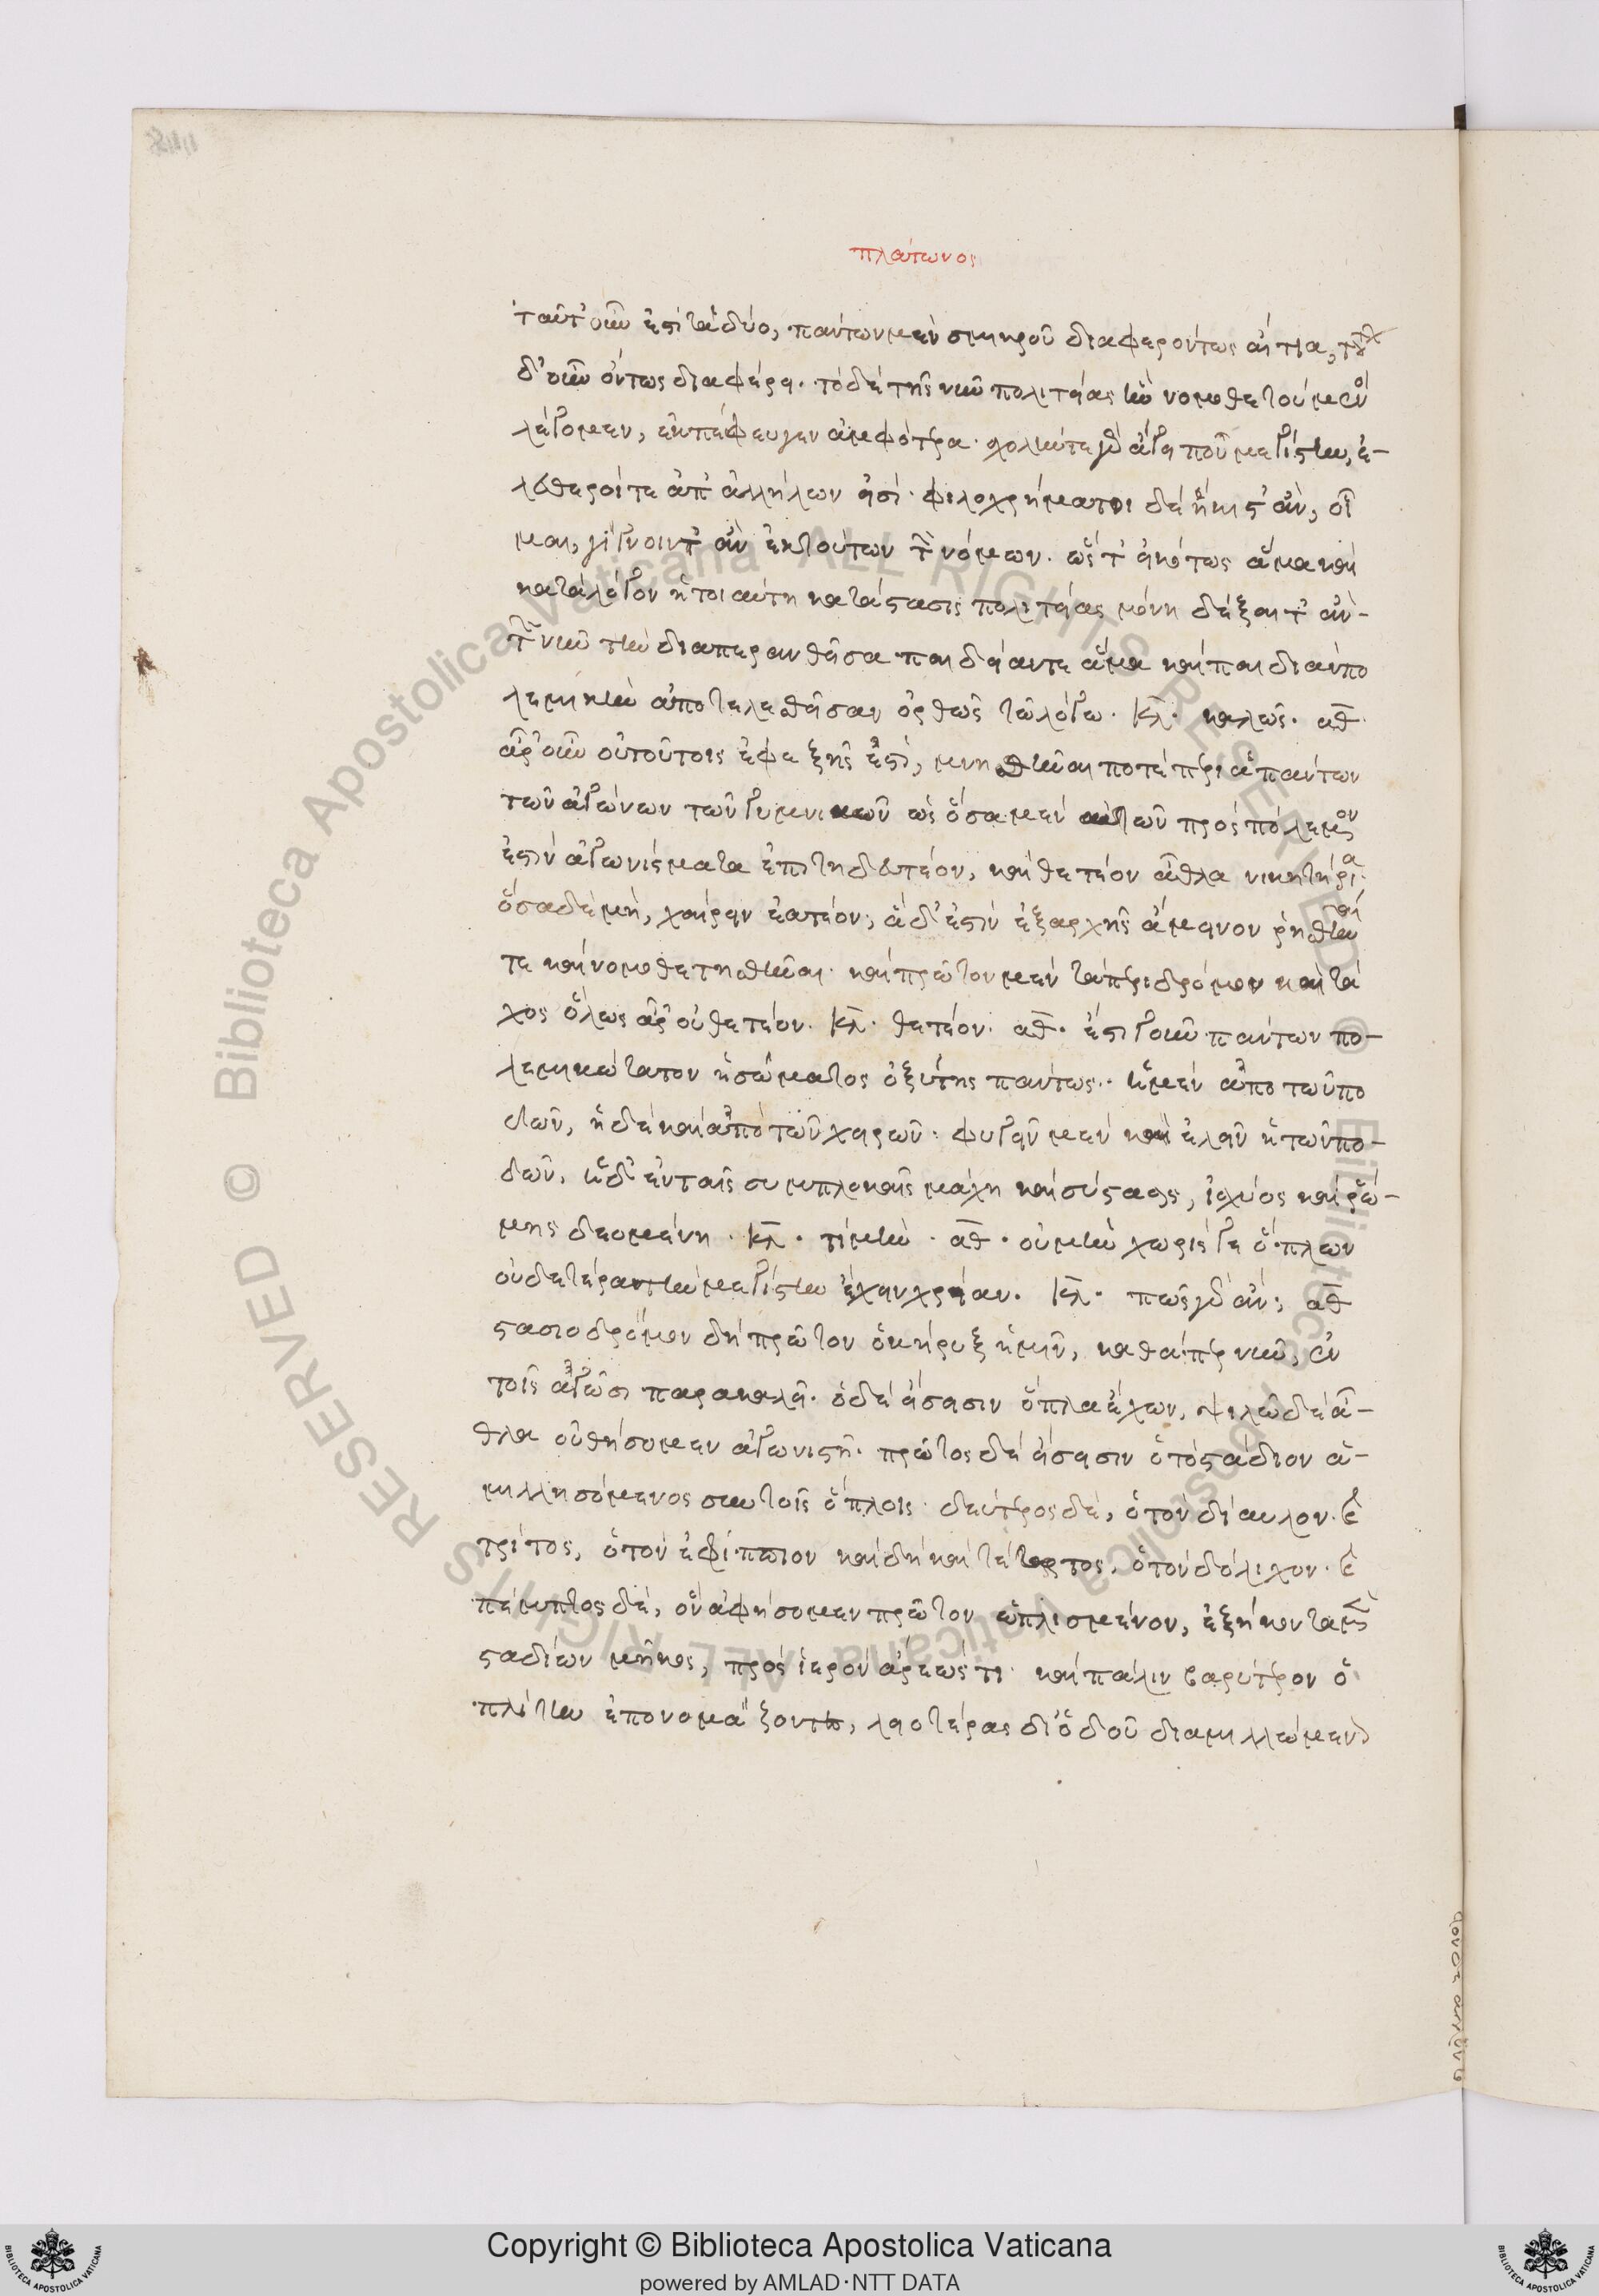 πλάτωνος
ταῦτ' οὖν ἐστὶ τὰ δύο, πάντων μὲν σμικροῦ διαφερόντως αἴτια,
δ' οὖν ὄντως διαφέρει. τὸ δὲ τῆς νῦν πολιτείας ἣν νομοθετούμενοι
λέγομεν, ἐκπέφευγεν ἀμφότερα. σχολήν τε γὰρ ἄγει που μεγίστην, ἐ-
λεύθεροί τε ἀπ' ἀλλήλων εἰσί. φιλοχρήματοι δὲ ἥκιστ' ἂν, οἶ
μαι, γίγνοιντ' ἂν ἐκ τούτων τῶν νόμων. ὥστ' εἰκότως ἅμα καὶ
κατὰ λόγον ἡ τοιαύτη κατάστασις πολιτείας μόνη δέξαιτ' ἂν-
τῶν νῦν τὴν διαπερανθεῖσα παιδείαν τε ἅμα καὶ παιδιὰν πο
λεμικὴν ἀποτελεσθεῖσαν ὀρθῶς τῶ λόγω. κλ. καλῶς. αθ.
ἆρ' οὖν οὐ τούτοις ἐφεξῆς ἐστὶ, μνησθῆναί ποτε περὶ ἁπάντων
τῶν ἀγώνων τῶν γυμνικῶν ὡς ὅσα μὲν αὐτῶν πρὸς πόλεμον
ἐστὶν ἀγωνίσματα ἐπιτηδευτέον, καὶ θετέον ἆθλα νικητήρια.
ὅσα δὲ μὴ, χαίρειν ἐατέον; ἃ δ' ἐστὶν ἐξαρχῆς ἄμεινον ῥηθῆναί
τε καὶ νομοθετηθῆναι. καὶ πρῶτον μὲν τὰ περὶ δρόμον καὶ τά
χος ὅλως ἆρ' οὐ θετέον. κλ. θετέον. αθ. ἔστι γοῦν πάντων πο-
λεμικώτατον ἡ σώματος ὀξύτης πάντως. ἡ μὲν ἀπὸ τῶν πο
δῶν, ἡ δὲ καὶ ἀπὸ τῶν χειρῶν. φυγεῖν μὲν καὶ ἑλεῖν ἡ τῶν πο-
δῶν, ἡ δ' ἐν ταῖς συμπλοκαῖς μάχη καὶ σύστασις, ἰσχύος καὶ ῥώ-
μης δεομένη. κλ. τί μήν. αθ. οὐ μὴν χωρίς γε ὅπλων
οὐδετέρα τὴν μεγίστην ἔχει χρείαν. κλ. πῶς γὰρ ἄν; αθ
σταδιοδρόμον δὴ πρῶτον ὁ κήρυξ ἡμῖν, καθάπερ νῦν, ἐν
τοῖς ἀγῶσι παρακαλεῖ. ὁ δὲ εἴσεισιν ὅπλα ἔχων, ψιλῶ δὲ ἆ-
θλα οὐ θήσομεν ἀγωνιστῆ. πρῶτος δὲ εἴσεισιν ὁ τὸ στάδιον ἁ-
μιλλησόμενος σὺν τοῖς ὅπλοις. δεύτερος δὲ, ὁ τὸν δίαυλον. καὶ
τρίτος, ὁ τὸν ἐφίππιον καὶ δὴ καὶ τέταρτος, ὁ τὸν δόλιχον. καὶ
πέμπτος δὲ, ὃν ἀφήσομεν πρῶτον ὡπλισμένον, ἑξήκοντα μὲν
σταδίων μῆκος, πρὸς ἱερὸν ἄρεώς τι. καὶ πάλιν βαρύτερον ὁ
πλίτην ἐπονομάζοντες, λειοτέρας δι' ὁδοῦ διαμιλλώμενον